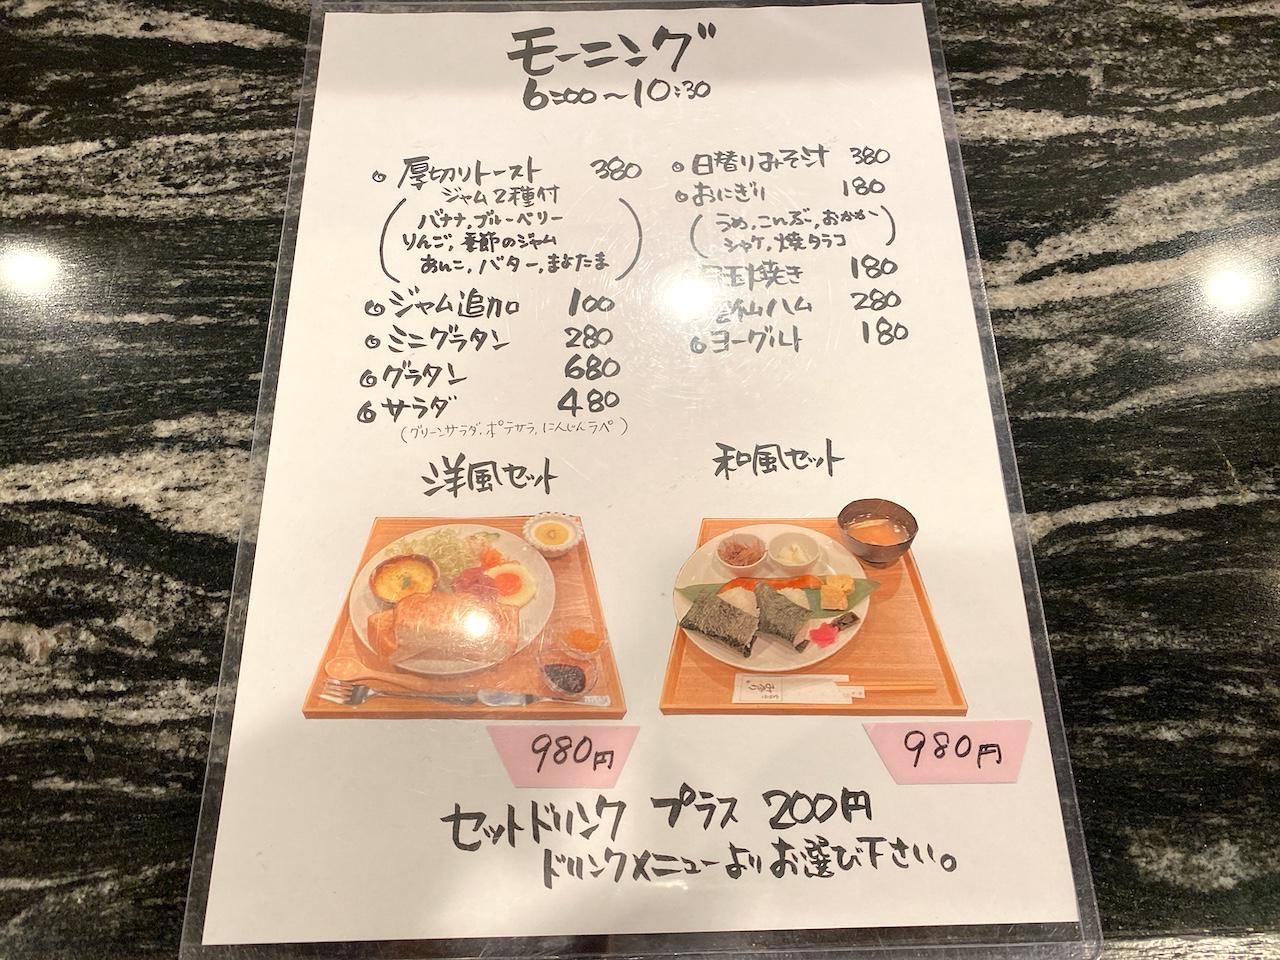 モーニング
6:00〜10:30
◎厚切りトースト 380
ジャム2種付
(バナナ,ブルーベリー
りんご,季節のジャム
あんこ,バター,まよたま)
◎ジャム追加 100
◎ミニグラタン 280
◎グラタン 680
◎サラダ 480
(グリーンサラダ,ポテサラ,にんじんラペ)
◎日替りみそ汁 380
◎おにぎり 180
(うめ,こんぶ,おかか
シャケ,焼タラコ)
玉焼き 180
ハム 280
◎ヨーグルト 180
洋風セット
和風セット
980円
980円
セットドリンク プラス 200円
ドリンクメニューよりお選び下さい。